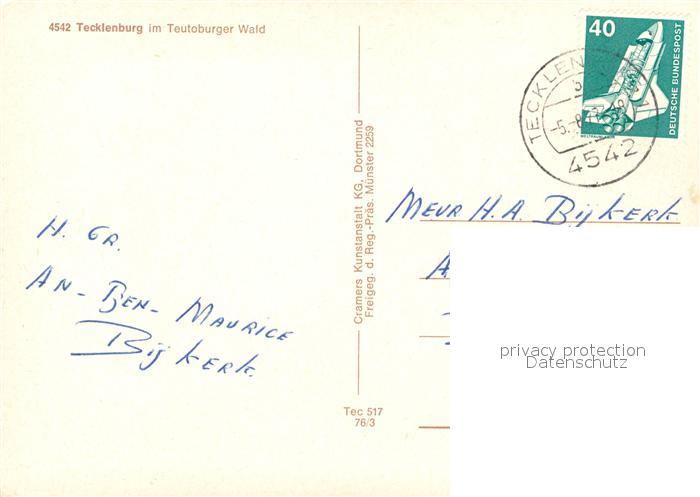 4542 Tecklenburg im Teutoburger Wald
40
DEUTSCHE BUNDESPOST
TECKLEN
4542
MEVR H.A. Bijkerk
A
H. GR.
AN- BEN- MAURICE
Bijkerk.
Cramers Kunstanstalt KG, Dortmund
Freigeg. d. Reg.-Präs. Münster 2259
Tec 517
76/3
privacy protection
Datenschutz